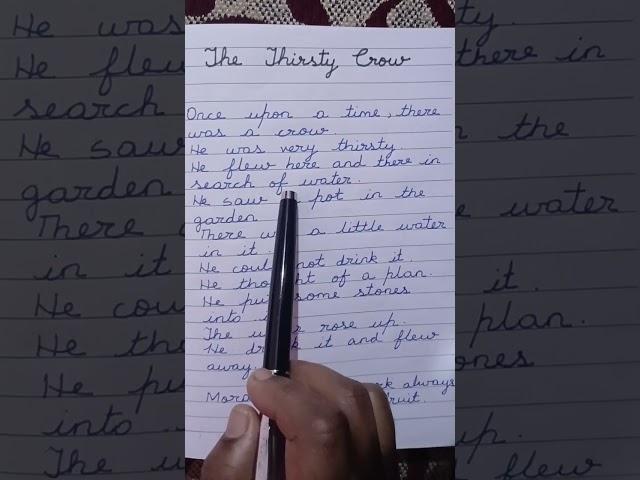 The Thirsty Crow
Once upon a time, there
was a crow.
He was very thirsty.
He flew here and there in
search of water.
He saw pot in the
garden
There a little water
in it
He not drink it.
He of a plan.
He some stones
into
The rose up.
He it and flew
away.
always
fruit.